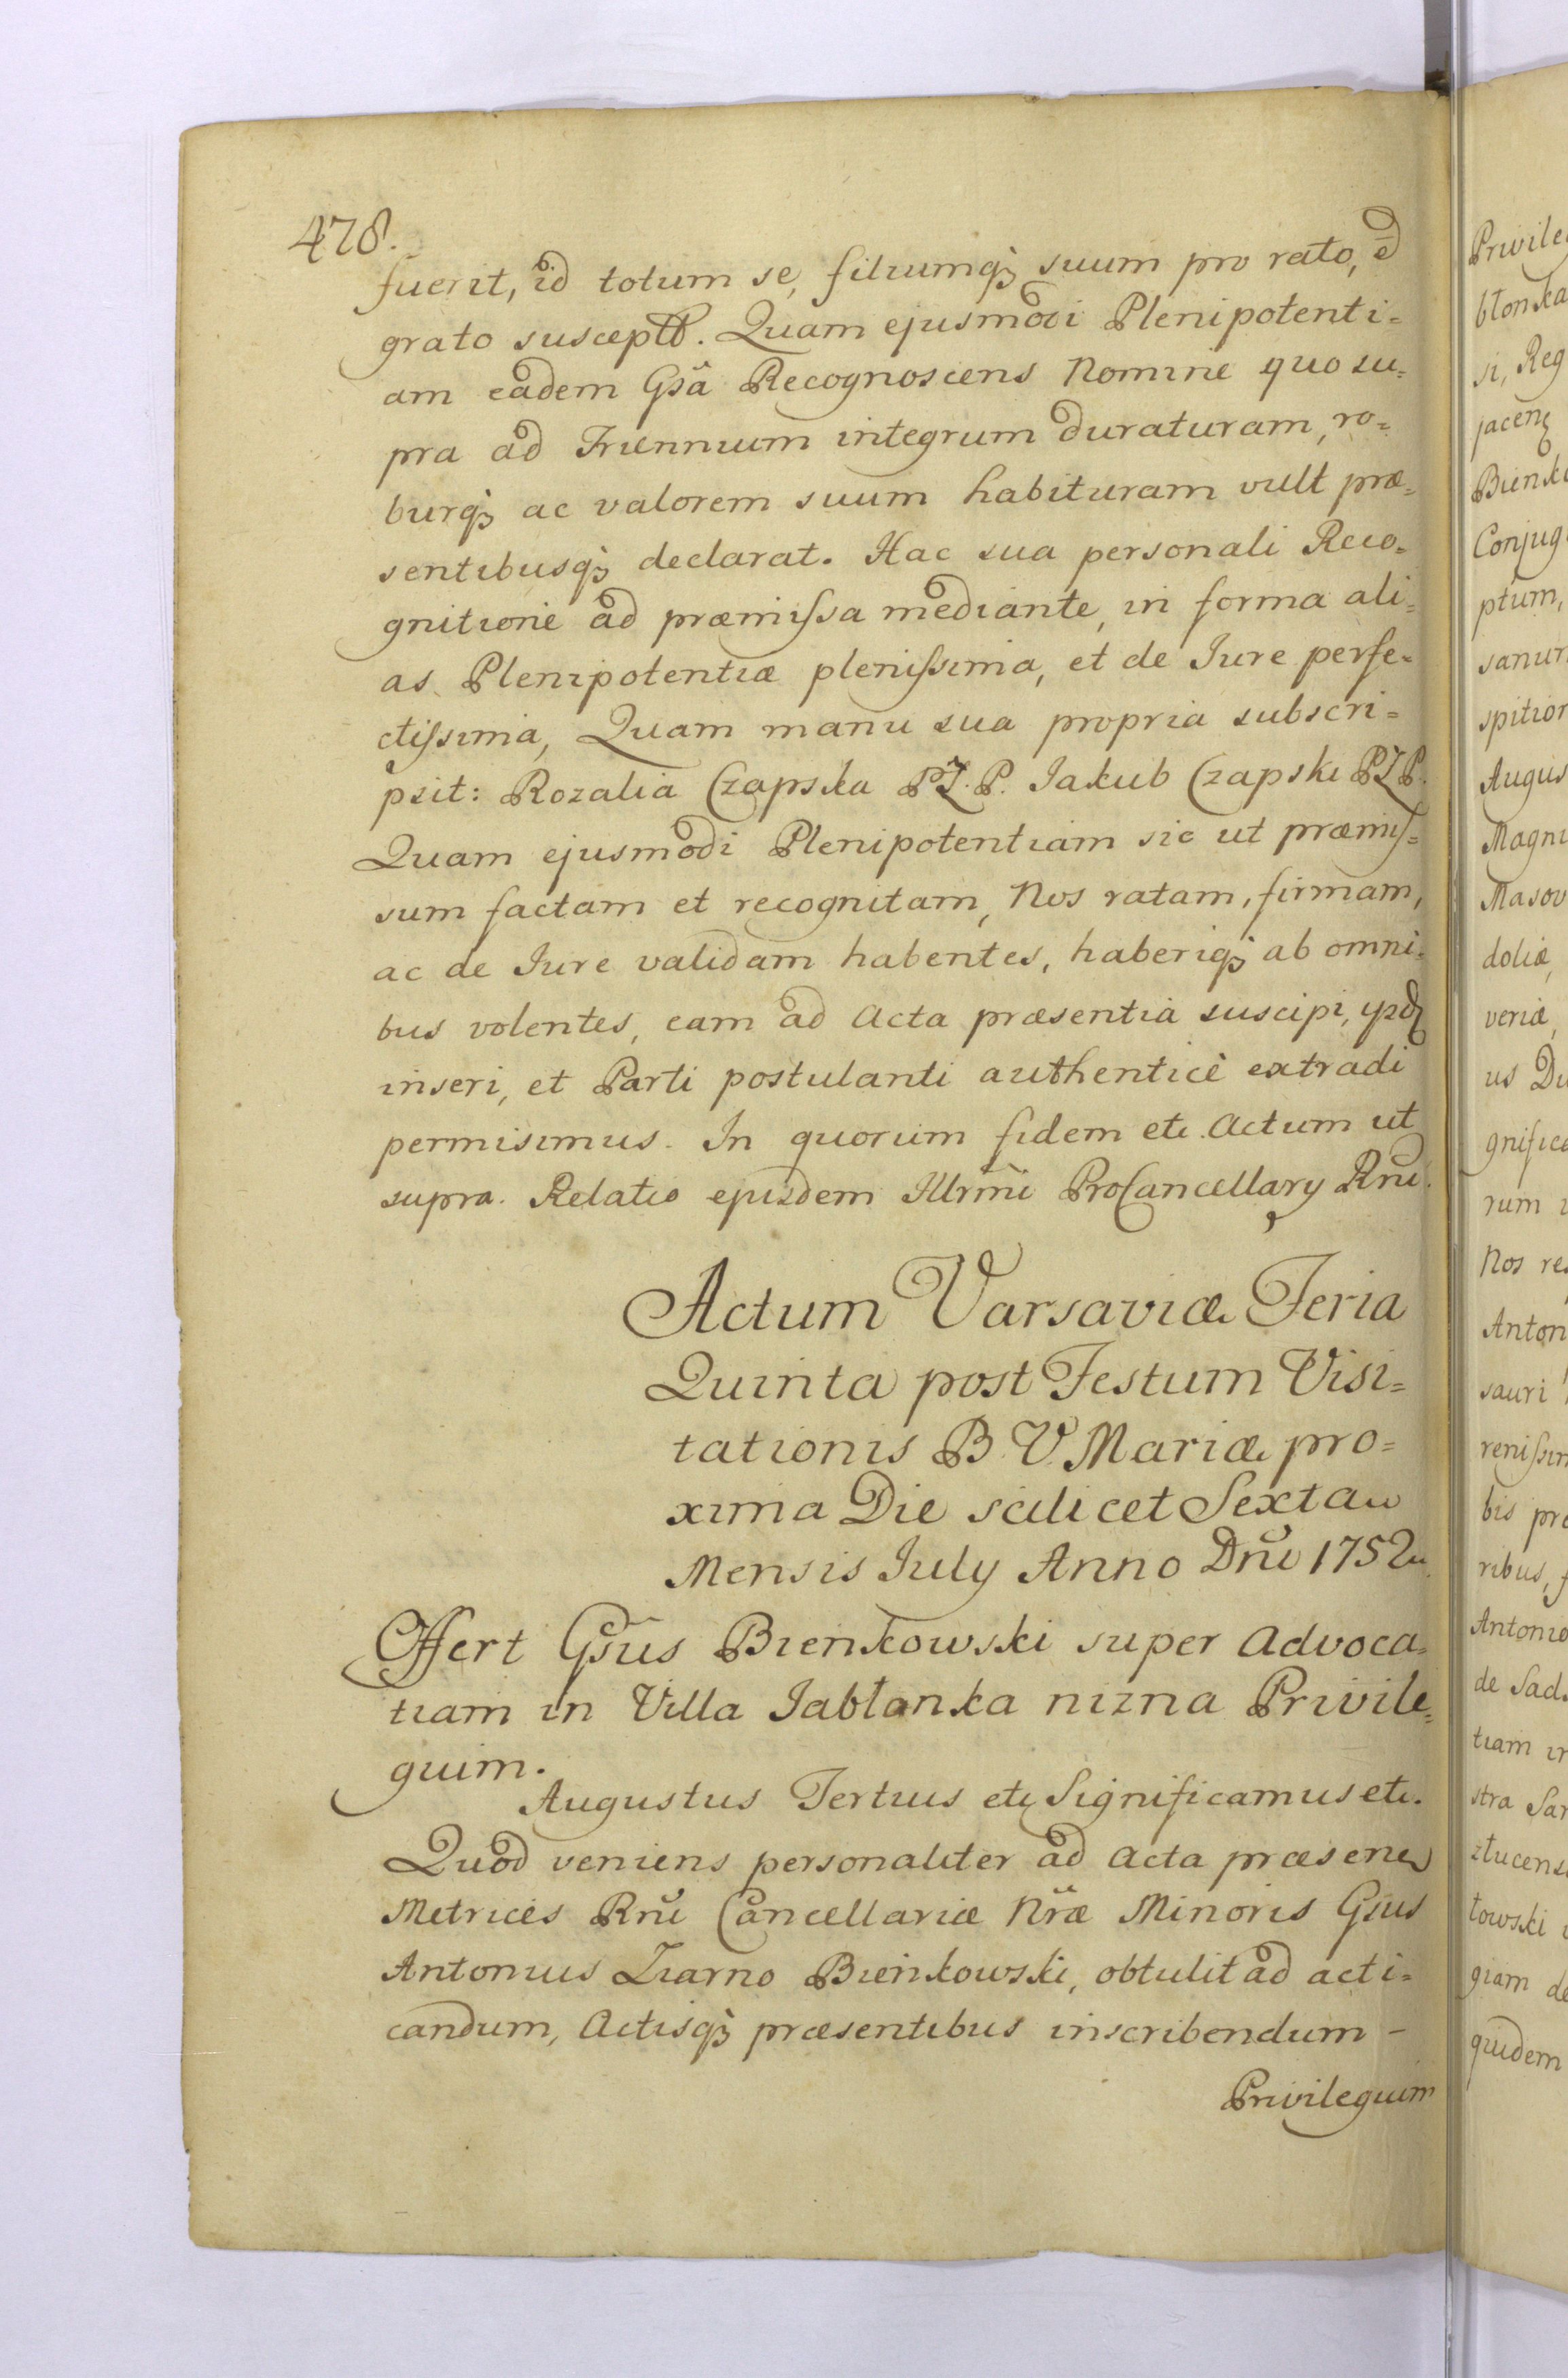 478.
fuerit, id totum se, filiumqꝫ suum pro rato, ed
grato susceptt. Quam ejusmodi Plenipotenti=
am eadem Gsã Recognoscens Nomine quo su=
pra ad Triennium integrum duraturam, ro=
burqꝫ ac valorem suum habituram vult præ=
sentibusqꝫ declarat. Hac sua personali Reco=
gnitione ad præmissa mediante, in forma ali=
as Plenipotentiæ plenissima, et de Iure perfe=
ctissima, Quam manu sua propria subscri=
psit: Rozalia Czapska PZ.P. Iakub Czapski PZP.
Quam ejusmodi Plenipotentiam sic ut præmis=
sum factam et recognitam, Nos ratam, firmam,
ac de Iure validam habentes, haberiqꝫ ab omni=
bus volentes, eam ad Acta præsentia suscipi,
inseri, et Parti postulanti authenticè extradi
permisimus. In quorum fidem etc. Actum ut
supra. Relatio ejusdem Illrm̃i ProCancellary Rnĩ.
Actum Varsaviæ Feria
Quinta post Festum Visi=
tationis B V Mariæ pro=
xima Die scilicet Sexta
Mensis July Anno Dnĩ 1752
Offert Gsũs Bienkowski super Advoca=
tiam in Villa Jabłonka nizna Privile=
gium.
Augustus Tertius etc Significamus etc.
Quod veniens personaliter ad Acta præsenes
Metrices Rnĩ Cancellariæ Nræ̃ Minoris Gsũs
Antonius Ziarno Bieńkowski, obtulit ad acti=
candum, Actisqꝫ præsentibus inscribendum –
Privilegium
Privile
błonka
si, Reg
jacenꝫ
Bienko
Conjug
ptum,
sanur
spition
Augus
Magni
Masov
doliæ,
veriæ,
us Du
gnifica
rum
Nos re
Anton
sauri
renissim
bis pro
ribus, f
Antonio
de Sad
tiam in
stra San
złucens
towski
giam de
quidem